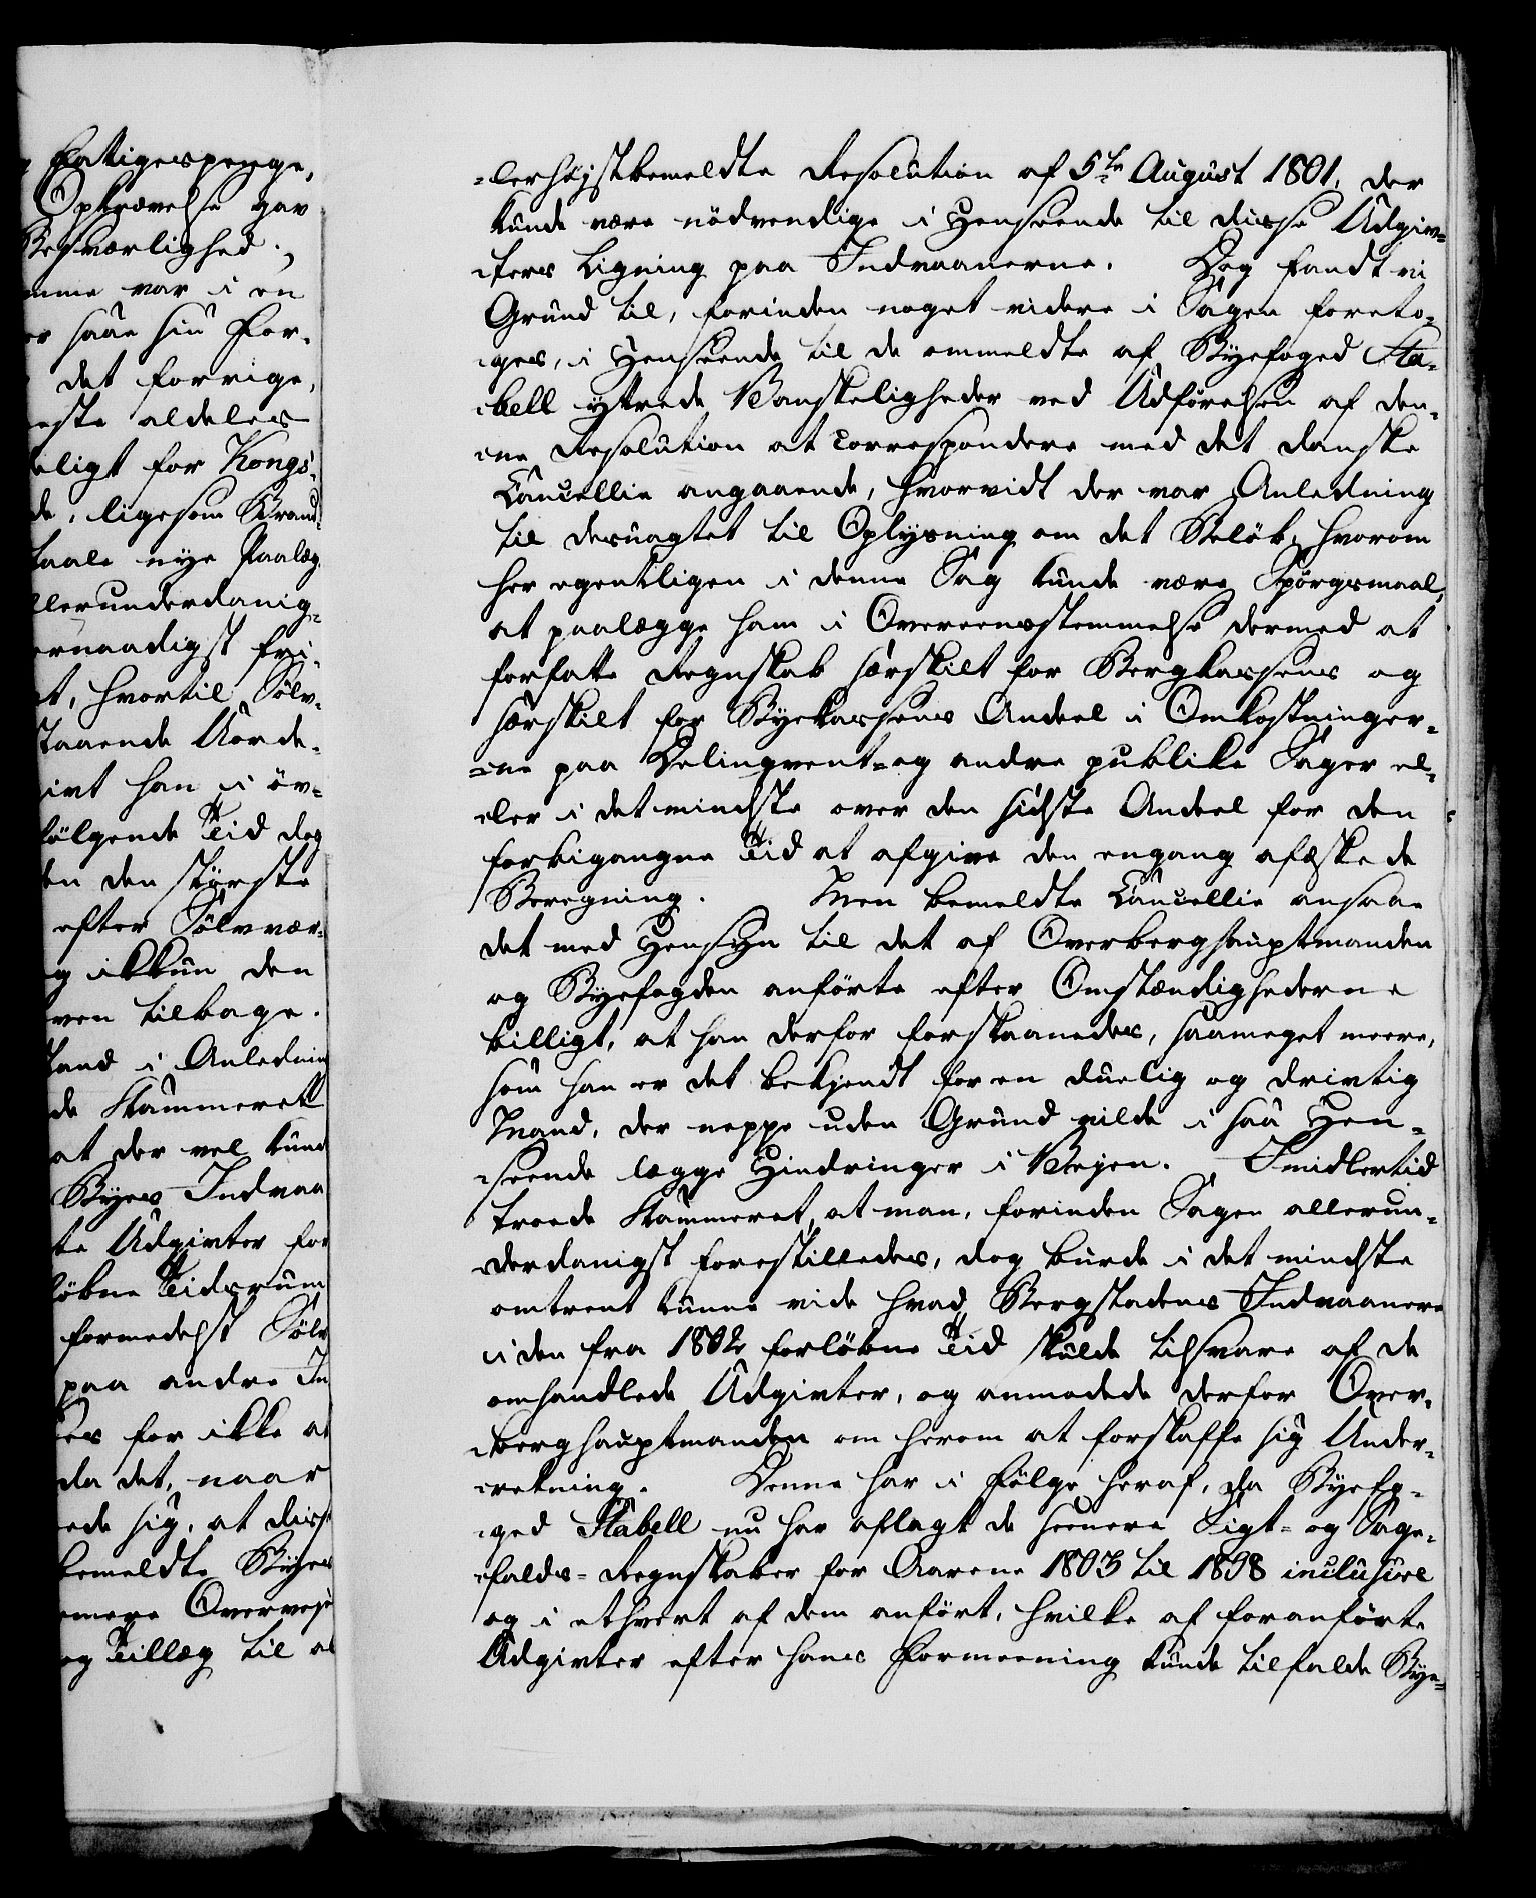 Fatigespenge,
Opkrævelse gav
Besværlighed.,
mme var i en
er saae sin For-
det forrige,
este aldeles
eligt for Kongs-
de, ligesom Brand-
taale nye Paalæg
llerunderdanig-
ernaadigst fri-
et, hvortil Sölv-
staaende Uorde-
ivt han i öv-
fölgende Tid dog
en den störste
efter Sölvvær-
g ikkun den
ven tilbage.
tand i Anlednin
de Kammeret
at der vel kund
Byens Indvaa
te Udgivter for
löbne Tidsrum
formedelst Sölv
paa andre In
es for ikke at
da det, naar
ede sig, at diss
bemeldte Byes
emere Overveje
og Tillæg til al
-lerhöjstbemeldte Resolution af 5te August 1801, der
kunde være nödvendige i Henseende til disse Udgiv-
-ters Ligning paa Indvaanerne. Dog fandt vi
Grund til, forinden noget videre i Sagen foreto-
-ges, i Henseende til de ommeldte af Byefoged Sta-
-bell yttrede Vanskeligheder ved Udförelsen af den-
-ne Resolution at correspondere med det danske
Cancellie angaaende, hvorvidt der var Anledning
til desuagtet til Oplysning om det Belöb, hvorom
her egentligen i denne Sag kunde være Spörgsmaal,
at paalægge ham i Overeensstemmelse dermed at
forfatte Regnskab særskilt for Bergkassens og
særskilt for Byekassens Andeel i Omkostninger-
-ne paa Delinqvent- og andre publike Sager el-
-ler i det mindste over den sidste Andeel for den
forbigangne Tid at afgive den engang afæskede
Beregning. Men bemeldte Cancellie ansaae
det med Hensyn til det af Overberghauptmanden
og Byefogden anförte efter Omstændighederne
billigt, at han derfor forskaanedes, saameget meere,
som han er det bekjendt for en duelig og drivtig
Mand, der neppe uden Grund vilde i saa Hen-
-seende lægge Hindringer i Vejen. Imidlertid
troede Kammeret, at man, forinden Sagen allerun-
-derdanigst forestilledes, dog burde i det mindste
omtrent kunne vide hvad Bergstadens Indvaanere
i den fra 1802 forlöbne Tid skulde tilsvare af de
omhandlede Udgivter, og anmodede derfor Over-
-berghauptmanden om herom at forskaffe sig Under-
-retning. Denne har i Fölge heraf, da Byefo-
-ged Stabell nu har aflagt de seenere Sigt- og Sage-
-falds-Regnskaber for Aarene 1803 til 1808 inclusive
og i ethvert af dem anfört, hvilke af foranförte
Udgivter efter hans Formeening kunde tilfalde Bye-